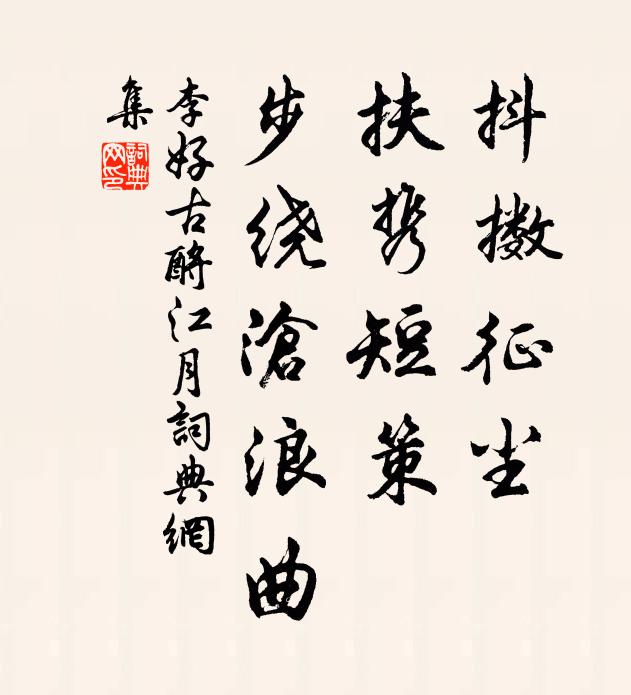 抖擞征尘
扶携短策
步绕滄浪曲
李好古酹江月詞典網
集
詞典網印